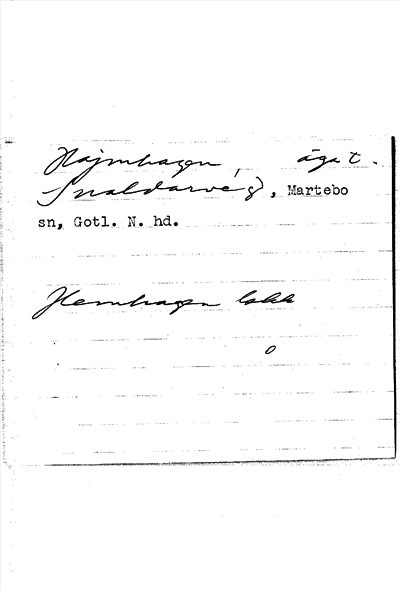 Hajmhagen, äga t.
Snaldarve g), Martebo
sn, Gotl. N. hd.
Hemhagen
o